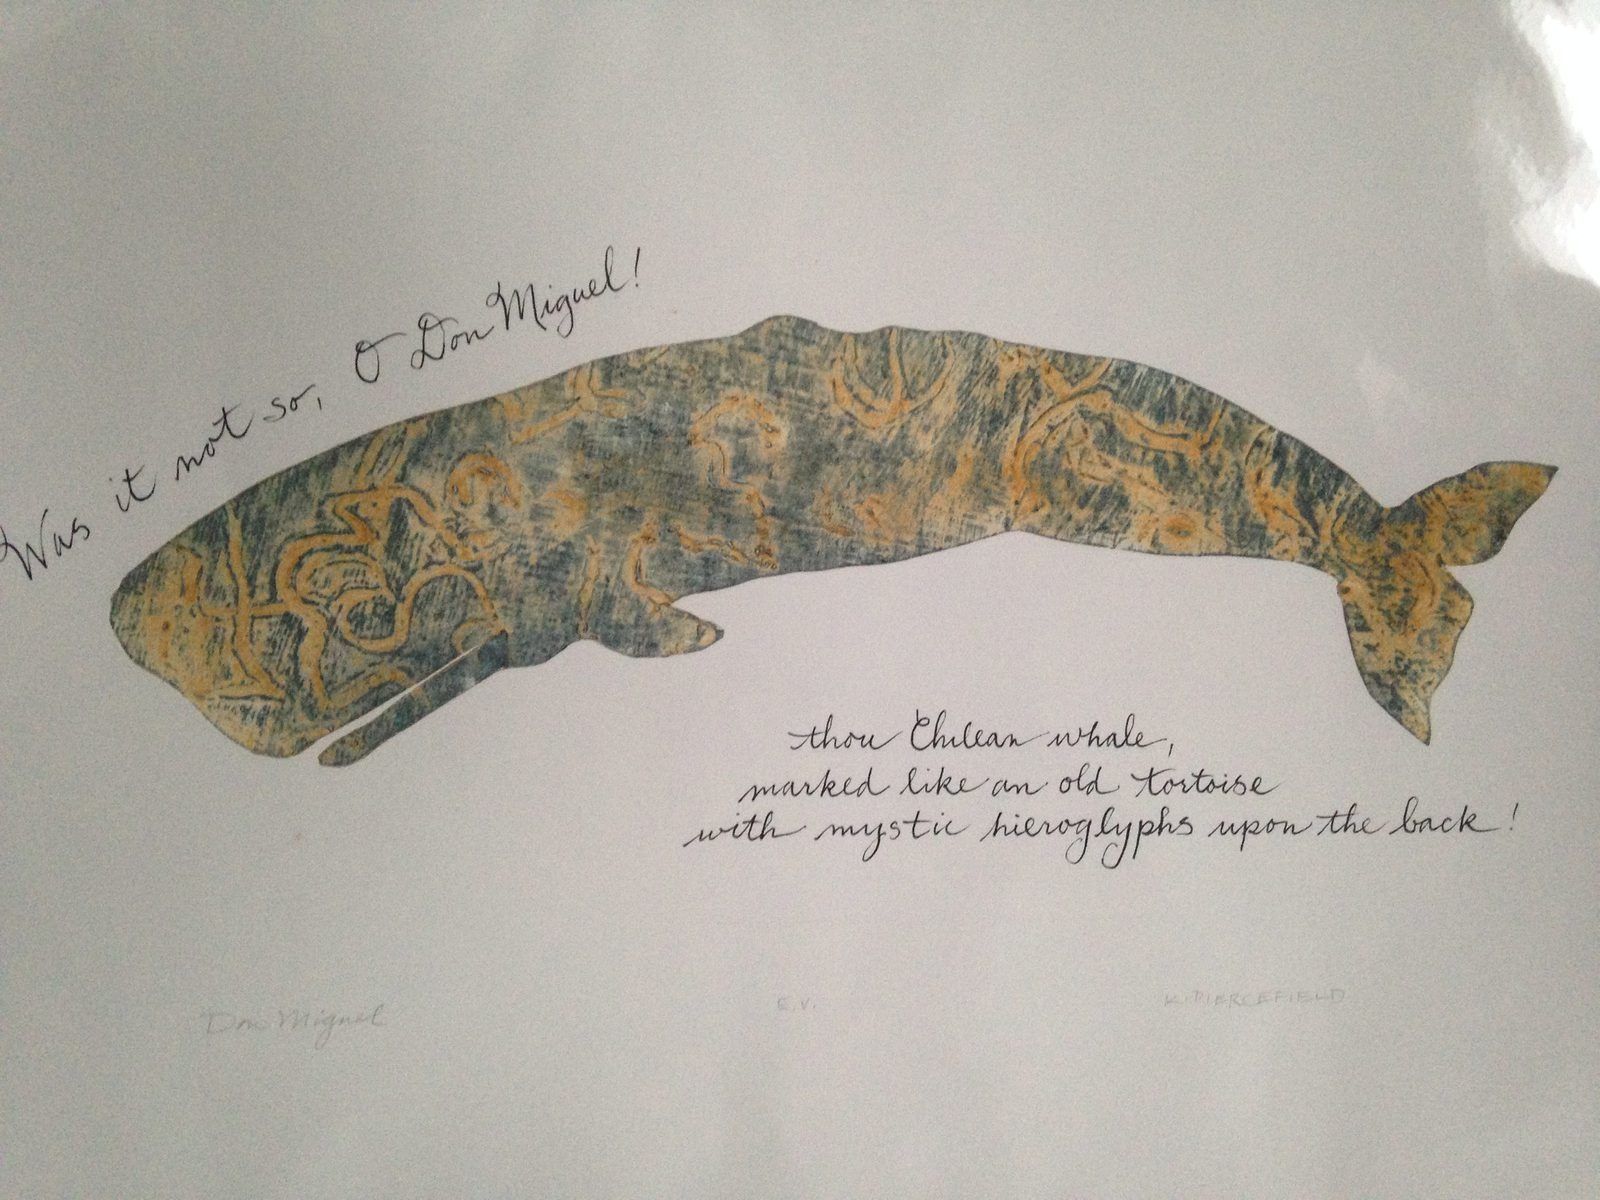 Was it not so, O Don Miguel!
thou Chilean whale,
marked like an old tortoise
with mystic hieroglyphs upon the back!
Don Miguel
E.V.
K. PIERCEFIELD